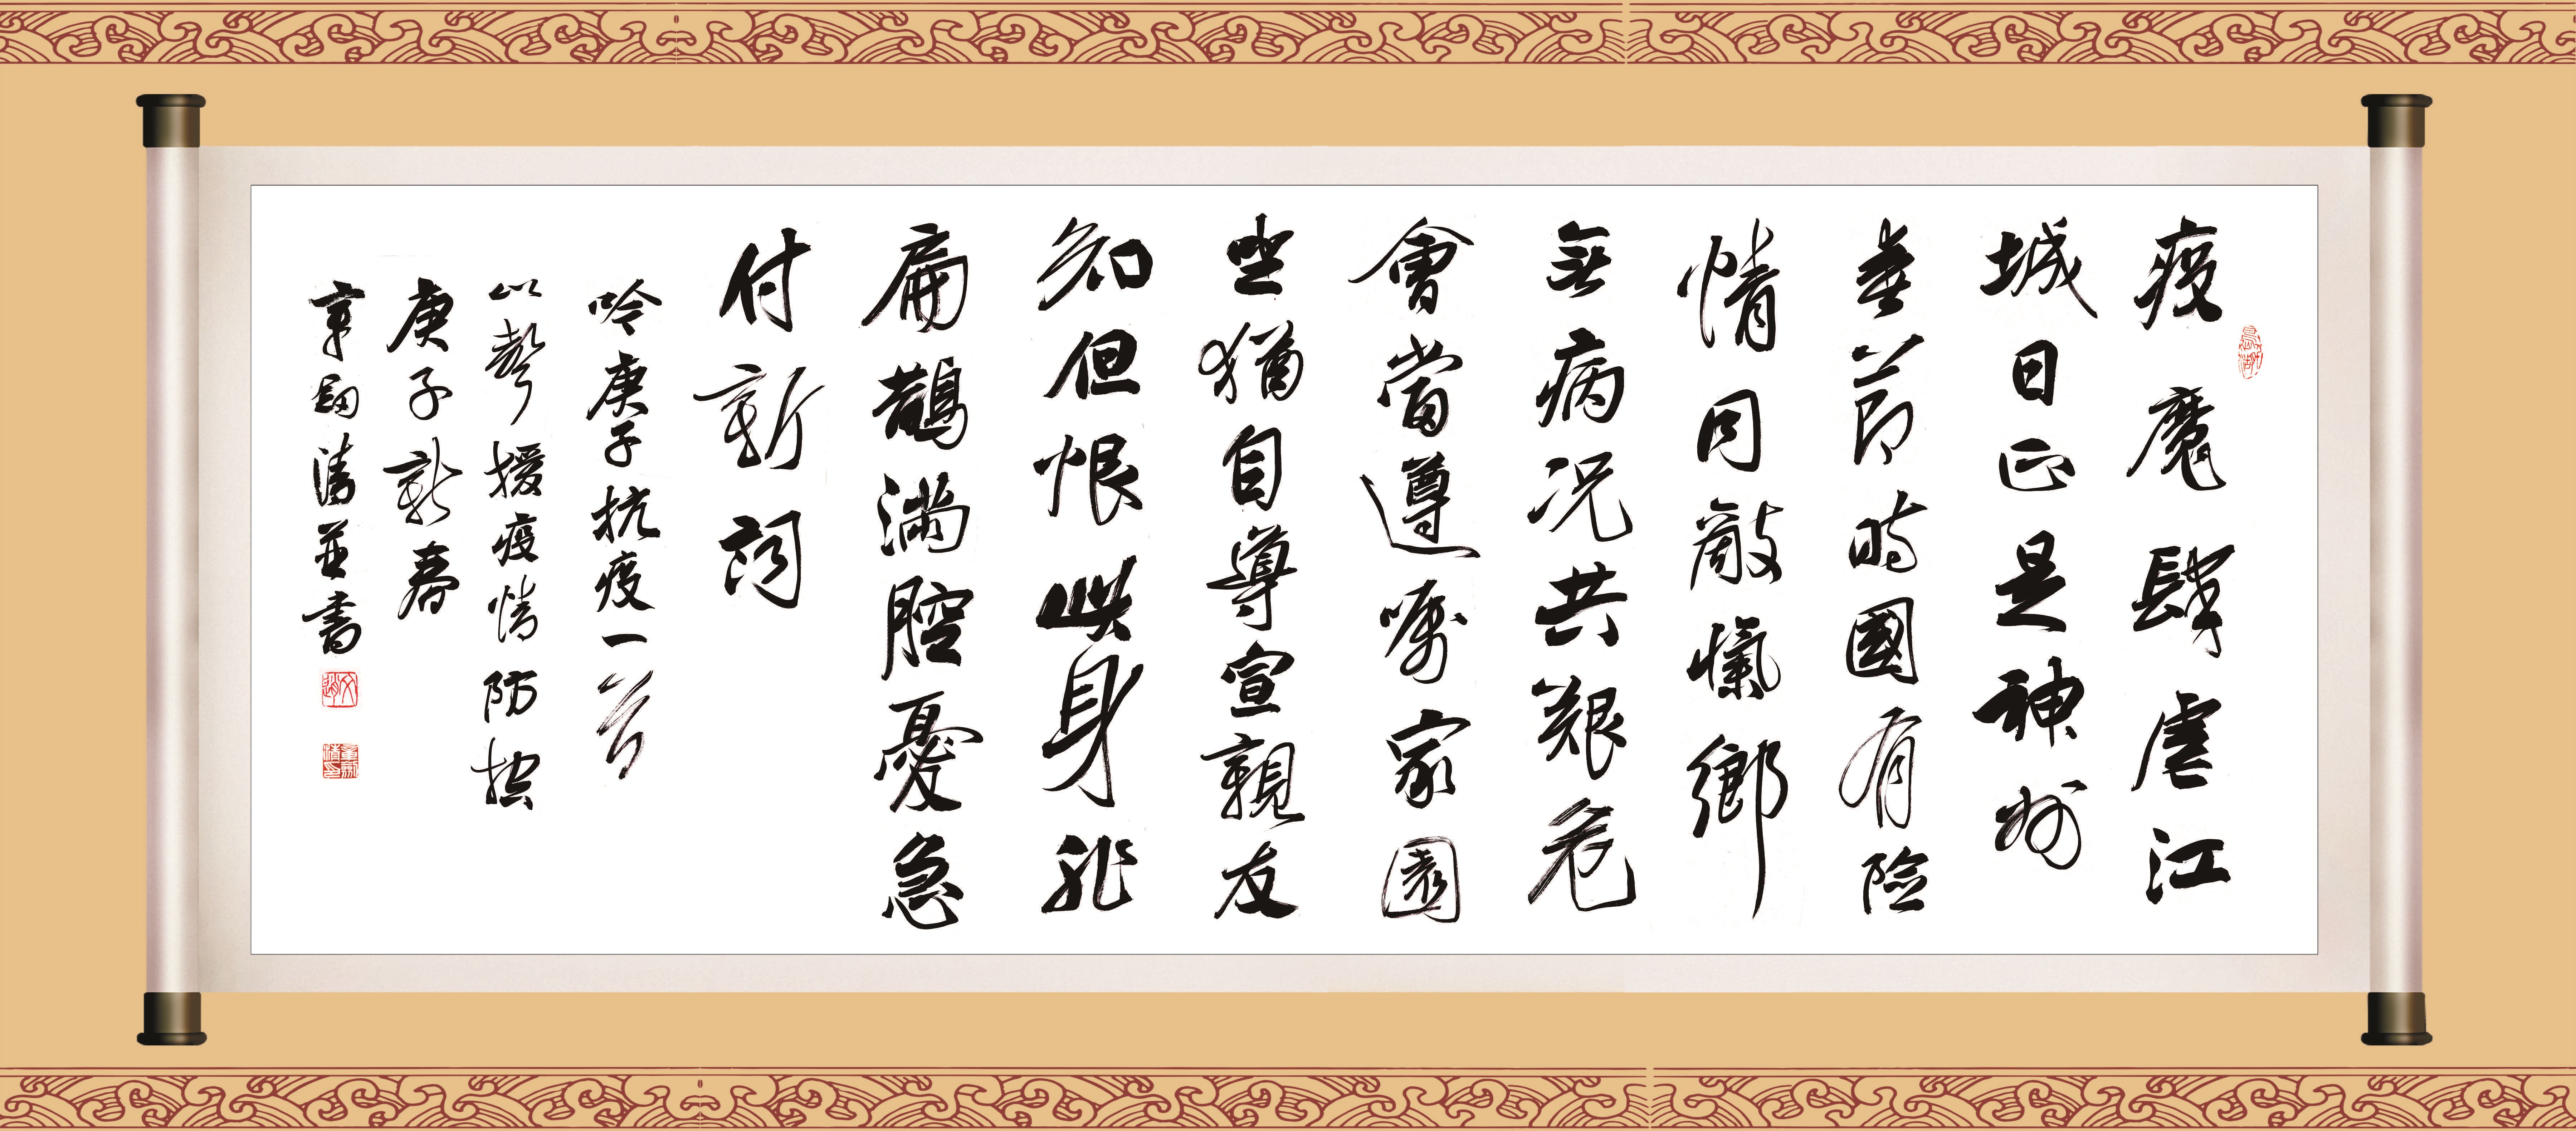 疫魔肆虐江
城日正是神州
春節時國有險
情同敵愾鄉
無病況共艱危
會當遵囑家園
坐猶自導宣親友
知但恨嘆身非
扁鵲滿腔憂急
付新詞
吟庚子抗疫一首
以聲援疫情防控
庚子新春
清並書